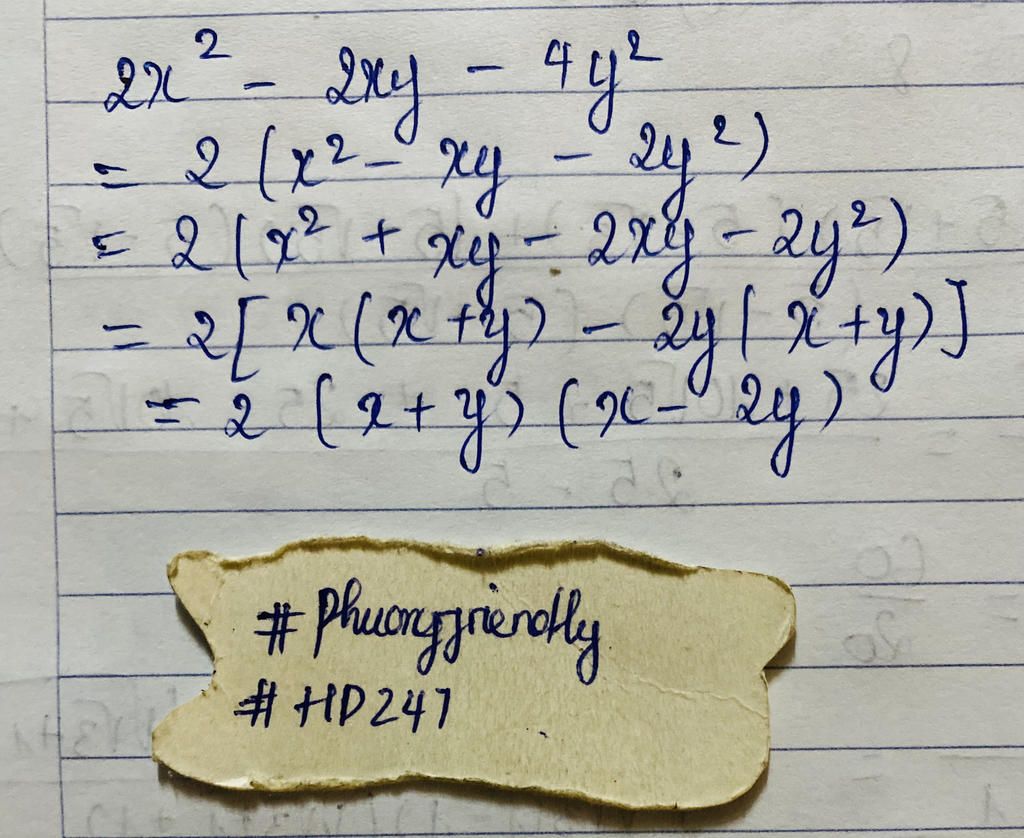 2x² - 2xy - 4y²
= 2 (x² - xy - 2y²)
= 2 (x² + xy - 2xy - 2y²)
= 2[ x (x + y) - 2y( x + y) ]
= 2 (x + y) (x - 2y)
# Phuongfriendly
# HD247